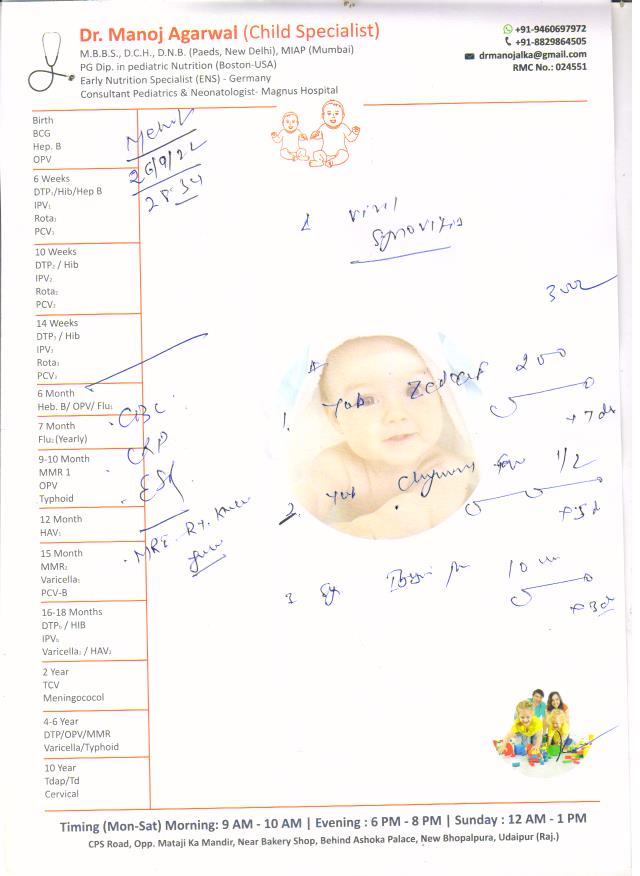 Dr. Manoj Agarwal (Child Specialist)
M.B.B.S., D.C.H., D.N.B. (Paeds, New Delhi), MIAP (Mumbai)
PG Dip. in pediatric Nutrition (Boston-USA)
Early Nutrition Specialist (ENS) - Germany
Consultant Pediatrics & Neonatologist- Magnus Hospital
+91-9460697972
+91-8829864505
drmanojalka@gmail.com
RMC No.: 024551
Birth
BCG
Hep. B
OPV
6 Weeks
DTP₁/Hib/Hep B
IPV₁
Rota₁
PCV₁
10 Weeks
DTP₂ / Hib
IPV₂
Rota₂
PCV₂
14 Weeks
DTP₃ / Hib
IPV₃
Rota₃
PCV₃
6 Month
Heb. B/ OPV/ Flu₁
7 Month
Flu₂(Yearly)
9-10 Month
MMR 1
OPV
Typhoid
12 Month
HAV₁
15 Month
MMR₂
Varicella₁
PCV-B
16-18 Months
DTP₅ / HIB
IPV₅
Varicella₂ / HAV₂
2 Year
TCV
Meningococol
4-6 Year
DTP/OPV/MMR
Varicella/Typhoid
10 Year
Tdap/Td
Cervical
28.34
Synovitis
1. Tab 200
x 7d
2. Tab 1/2
x 5d
3 Sy 10
x 3d
CBC
CRP
ESR
Timing (Mon-Sat) Morning: 9 AM - 10 AM | Evening : 6 PM - 8 PM | Sunday : 12 AM - 1 PM
CPS Road, Opp. Mataji Ka Mandir, Near Bakery Shop, Behind Ashoka Palace, New Bhopalpura, Udaipur (Raj.)